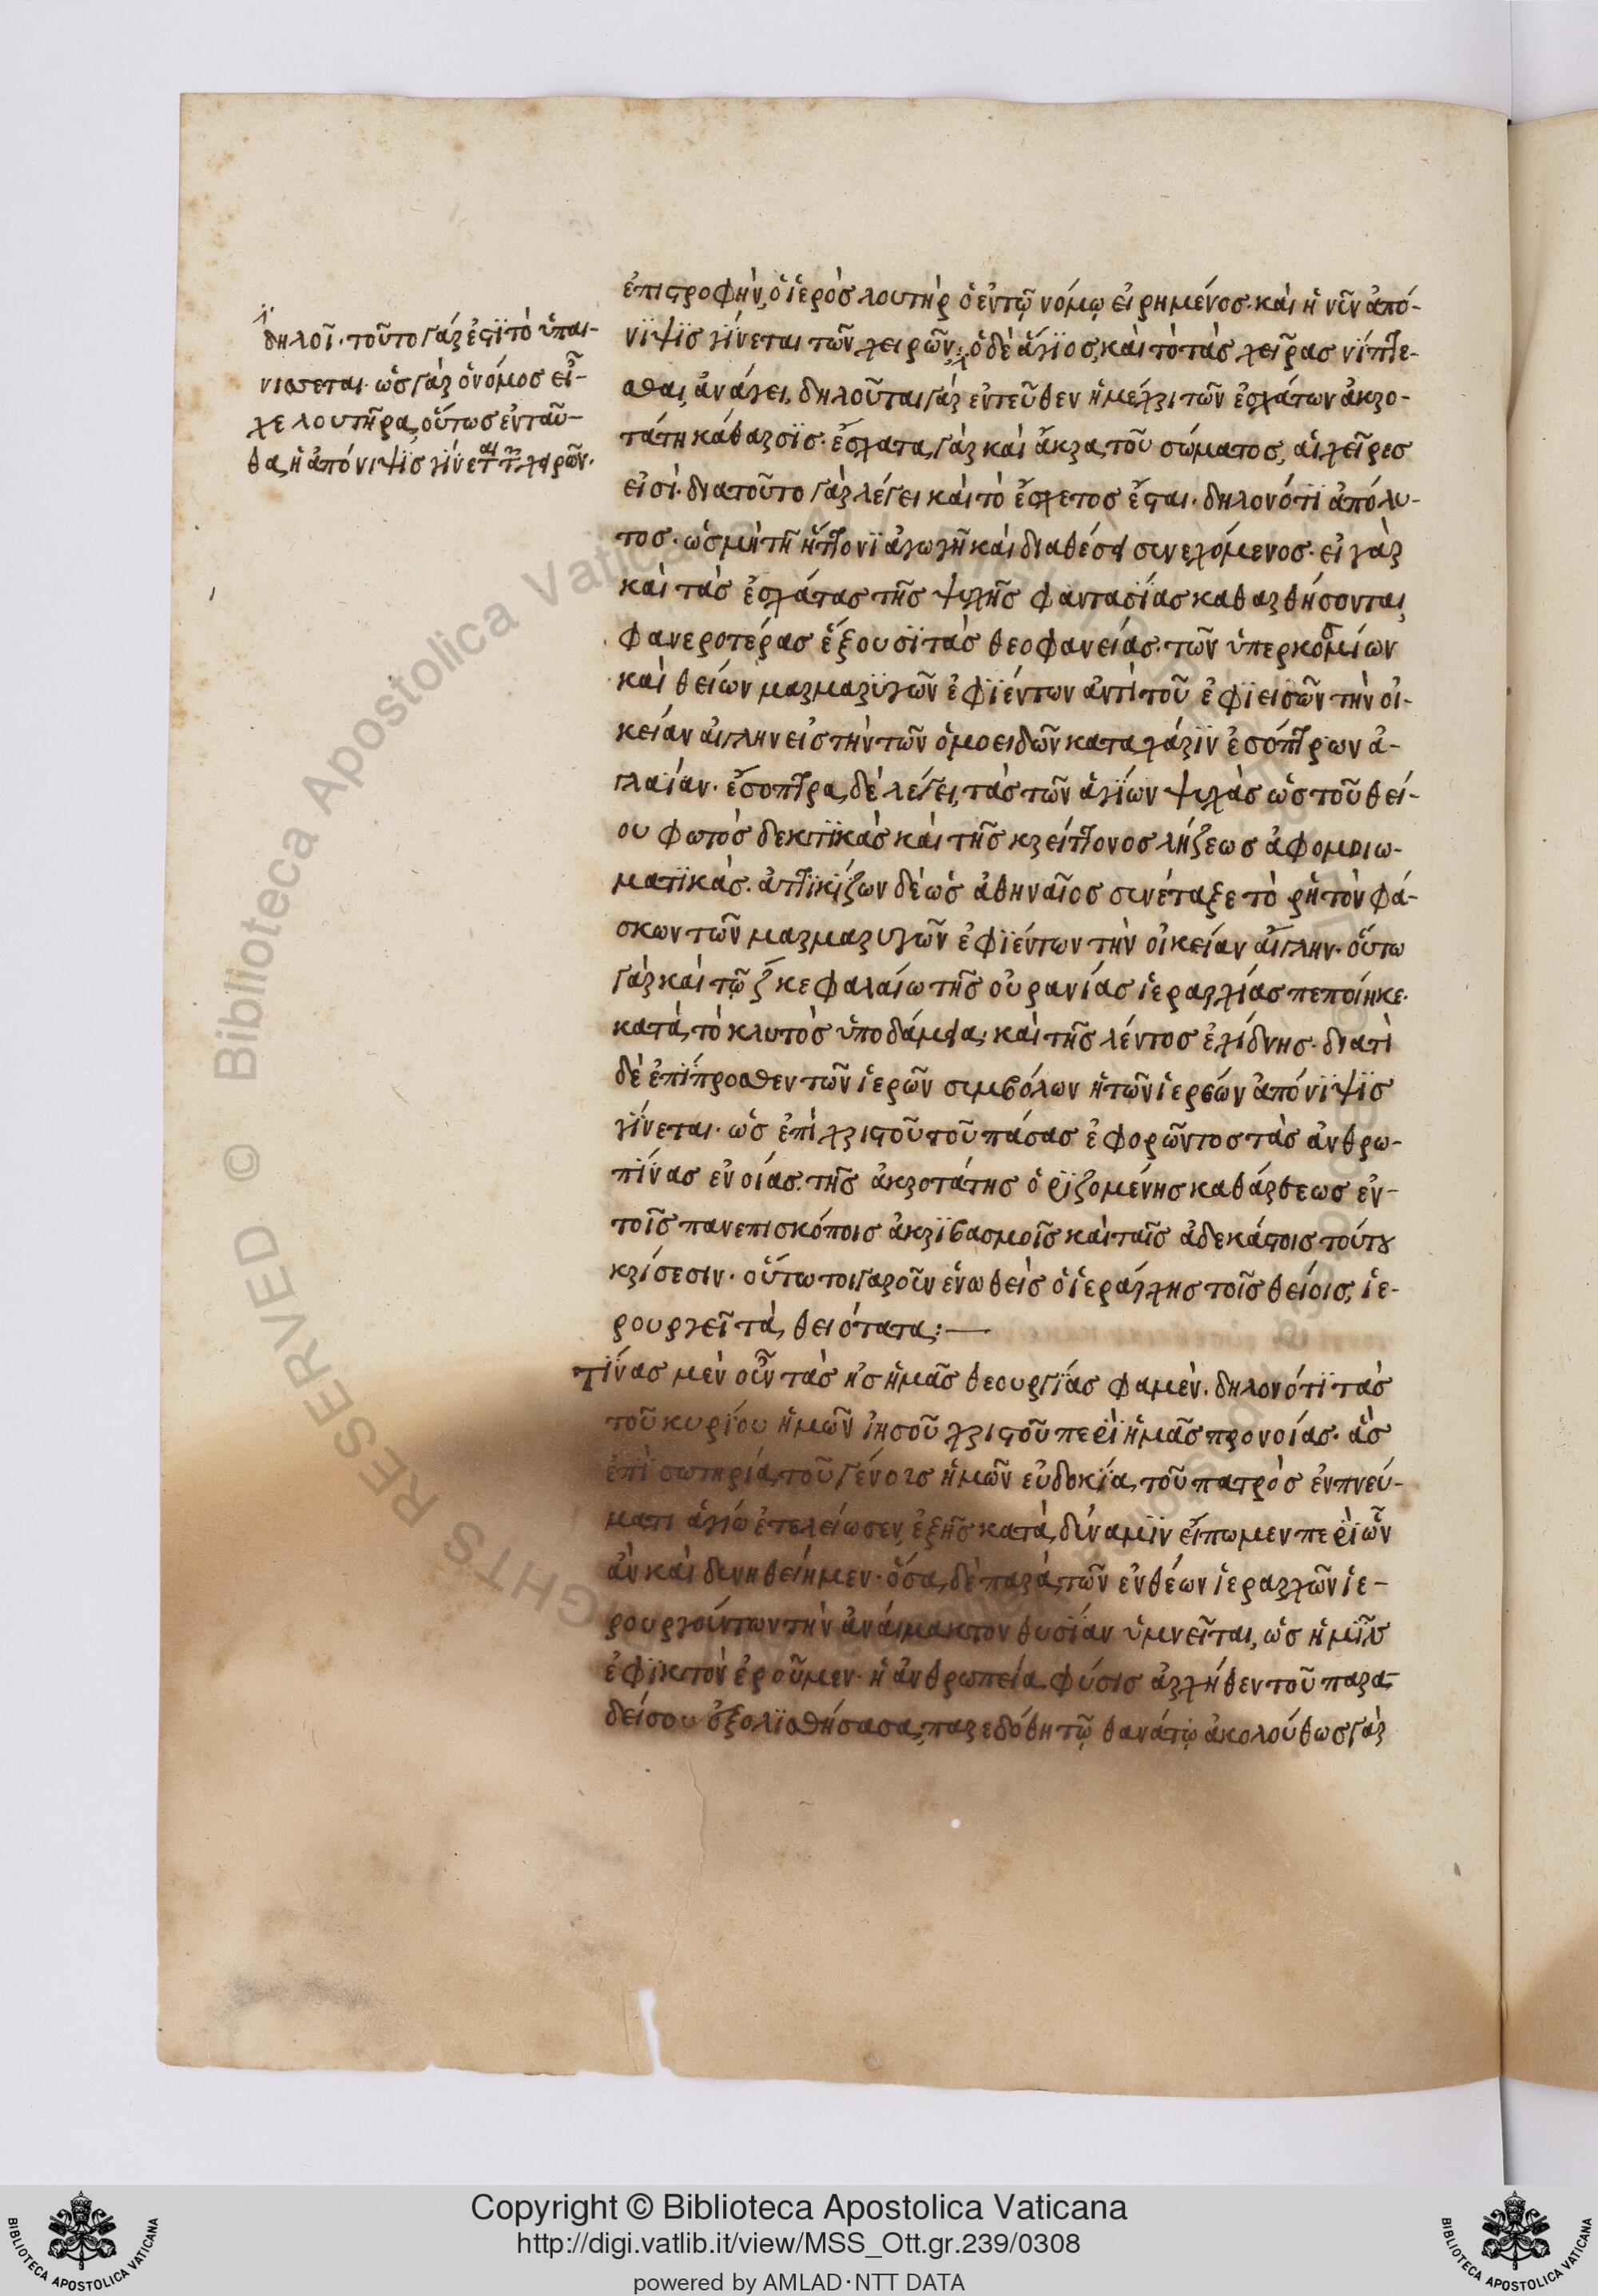 δηλοῖ· τοῦτο γάρ ἐστϊ τὸ ὑπαι-
νισεται· ὡς γὰρ ὁ νόμος εἶ-
χε λουτῆρα, οὕτως ἐνταῦ-
θα, ἡ ἀπόνιψϊς γίνεται τῶν χειρῶν.
ἐπιστροφὴν, ὁ ἱερὸς λουτὴρ ὁ ἐν τῷ νόμῳ εἰρημένος· καὶ ἡ νῦν ἀπό-
νϊψϊς γίνεται τῶν χειρῶν· ὁ δὲ ἅγϊος, καὶ τὸ τὰς χεῖρας νίπτε-
σθαι, ἀνάγει, δηλοῦται γὰρ ἐντεῦθεν ἡ μέχρι τῶν ἐσχάτων ἀκρο-
τάτη κάθαρσϊς· ἔσχατα, γὰρ καὶ ἄκρα, τοῦ σώματος, αἱ χεῖρες
εἰσὶ· διατοῦτο γὰρ λέγει καὶ τὸ ἔσχετος ἔσται· δηλονότϊ ἀπόλυ-
τος· ὡς μὴ τῆ ἥττονϊ ἀγωγῆ καὶ διαθέσει συνεχόμενος· εἰ γὰρ
καὶ τὰς ἐσχάτας τῆς ψυχῆς φαντασΐας καθαρθήσονται,
φανεροτέρας ἕξουσϊ τὰς θεοφανείας· τῶν ὑπερκοσμίων
καὶ θείων μαρμαρϋγῶν ἐφϊέντων ἀντὶ τοῦ ἐφϊεισῶν τὴν οἰ-
κείαν αἴγλην εἰς τὴν τῶν ὁμοειδῶν καταχάρϊν ἐσόπτρων ἀ-
γλαΐαν· ἔσοπτρα, δὲ λέγει, τὰς τῶν ἁγΐων ψυχὰς ὡς τοῦ θεί-
ου φωτὸς δεκτϊκὰς καὶ τῆς κρείττονος λήξεως ἀφομοιω-
ματϊκὰς· ἀττϊκΐζων δὲ ὡς ἀθηναῖος συνέταξε τὸ ῥητὸν φά-
σκων τῶν μαρμαρυγῶν ἐφϊέντων τὴν οἰκείαν αἴγλην· οὕτω
γὰρ καὶ τῷ ζ κεφαλαίω τῆς οὐρανίας ἱεραρχίας πεποίηκε·
κατὰ, τὸ κλυτὸς ὑποδάμεια, καὶ τῆς λέντος ἐχίδνης· διατὶ
δὲ ἐπΐπροσθεν τῶν ἱερῶν συμβόλων ἡ τῶν ἱερέων ἀπόνϊψϊς
γΐνεται· ὡς ἐπὶ χριστοῦ τοῦ πάσας ἐφορῶντος τὰς ἀνθρω-
πΐνας ἐνοίας. τῆς ἀκροτάτης ὁρϊζομένης καθάρσεως ἐν-
τοῖς πανεπισκόποις ἀκρϊβασμοῖς καὶ ταῖς ἀδεκάστοις τούτου
κρίσεσιν· οὕτω τοιγαροῦν ἑνωθεὶς ὁ ἱεράρχης τοῖς θείοις, ἱε-
ρουργεῖ τὰ, θειότατα:—
Τΐνας μὲν οὖν τὰς εἰς ἡμᾶς θεουργΐας φαμὲν· δηλονότϊ τὰς
τοῦ κυρΐου ἡμῶν ἰησοῦ χριστοῦ περϊ ἡμᾶς προνοίας· ἃς
ἐπϊ σωτηρία, τοῦ γένους ἡμῶν εὐδοκΐα, τοῦ πατρὸς ἐν πνεύ-
ματι ἁγίω ἐτελείωσεν, ἐξῆς κατὰ, δύναμϊν εἴπωμεν περὶ ὧν
ἂν καὶ δυνηθείημεν· ὅσα, δὲ παρὰ, τῶν ἐνθέων ἱεραρχῶν ἱε-
ρουργούντων τὴν ἀναίμακτον θυσΐαν ὑμνεῖται, ὡς ἡμῖν
ἐφϊκτὸν ἐροῦμεν· ἡ ἀνθρωπεία, φύσις ἀρχήθεν τοῦ παρα-
δείσου ἐξολϊσθήσασα, παρεδόθη τῷ θανάτῳ ἀκολούθως γὰρ
Copyright © Biblioteca Apostolica Vaticana
http://digi.vatlib.it/view/MSS_Ott.gr.239/0308
powered by AMLAD·NTT DATA